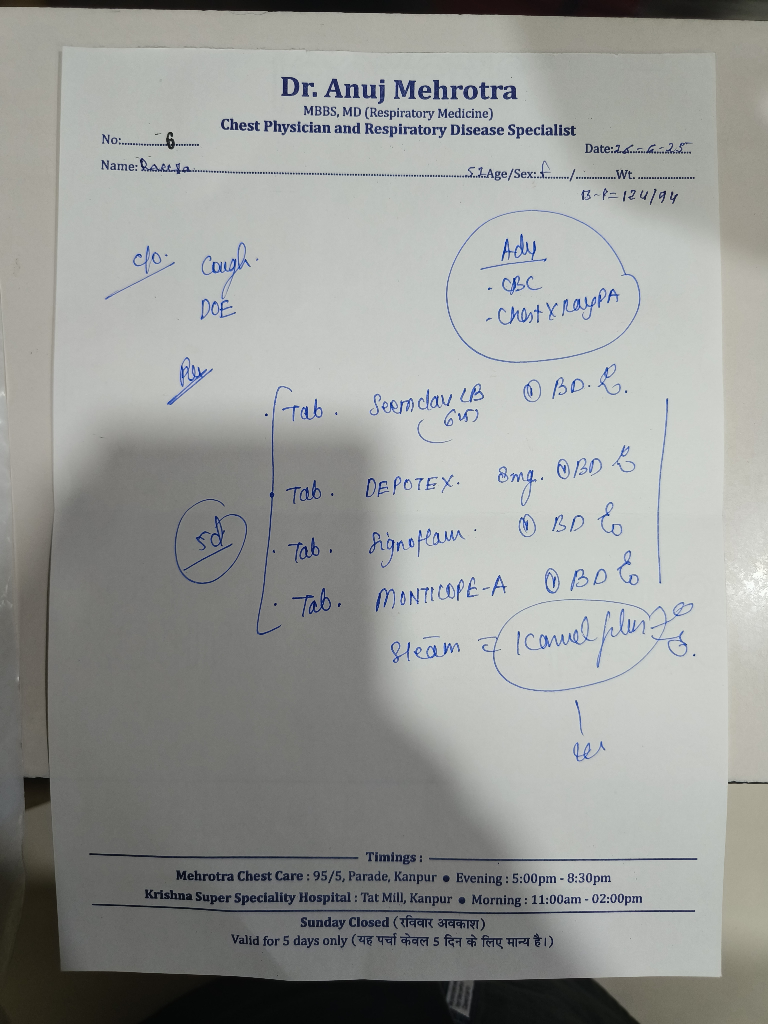 Dr. Anuj Mehrotra
MBBS, MD (Respiratory Medicine)
Chest Physician and Respiratory Disease Specialist
No:.............6
Date: 26-6-25
Name: 52 Age/Sex: F / Wt.
B-P= 124/94
c/o. Cough.
DOE
Adv
- CBC
- Chest X Ray PA
Rx
Tab. LB (625) ① BD.
Tab. DEPOTEX. 8mg. ① BD
5d
Tab. Signoflam. ① BD
Tab. MONTICOPE-A ① BD
Steam Karvol plus
Timings :
Mehrotra Chest Care : 95/5, Parade, Kanpur ● Evening : 5:00pm - 8:30pm
Krishna Super Speciality Hospital : Tat Mill, Kanpur ● Morning : 11:00am - 02:00pm
Sunday Closed (रविवार अवकाश)
Valid for 5 days only (यह पर्चा केवल 5 दिन के लिए मान्य है।)